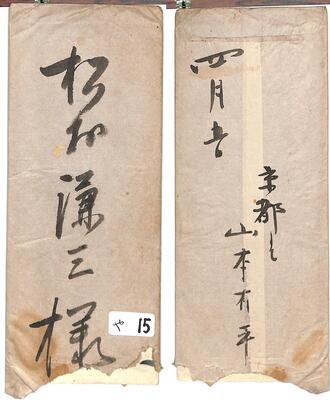 松村謙三様
や 15
四月五日
京都にて
山本有三